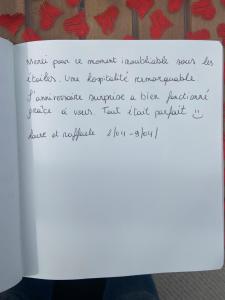 Merci pour ce moment inoubliable sous les
étoiles. Une hospitalité remarquable.
L'anniversaire surprise a bien fonctionné
grâce à vous. Tout était parfait :)
et raffaele /04 - 9/04/